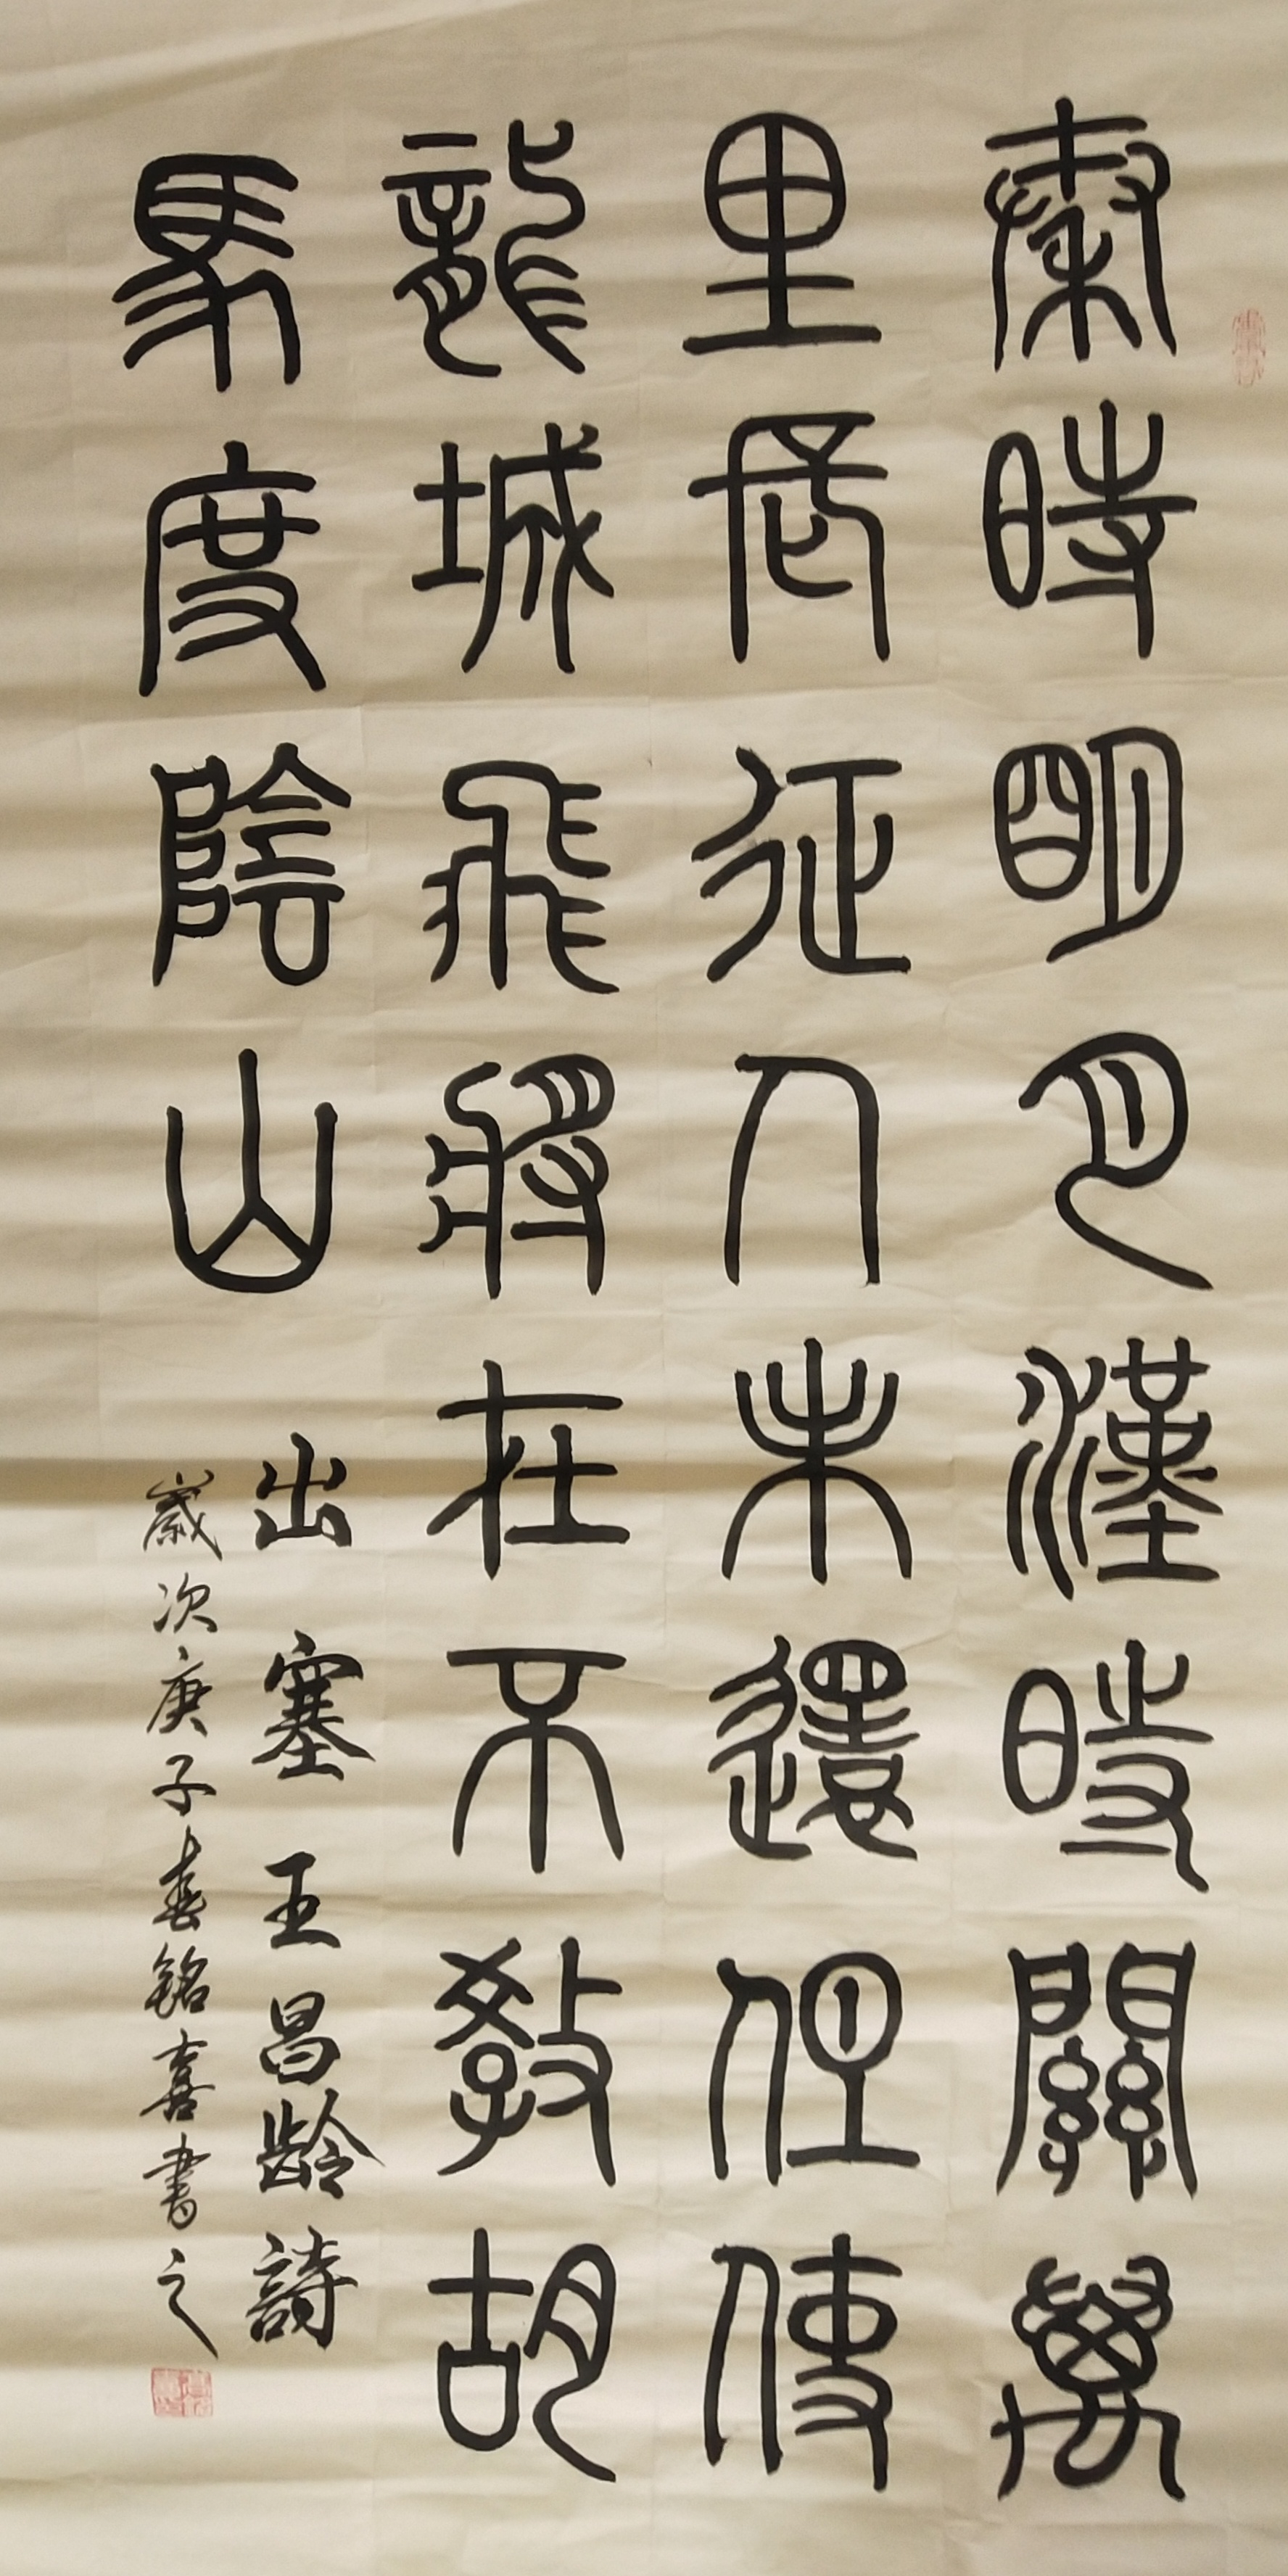 秦時明月漢時關萬
里長征人未還但使
龍城飛將在不教胡
馬度陰山
出塞 王昌龄詩
歲次庚子春銘喜書之